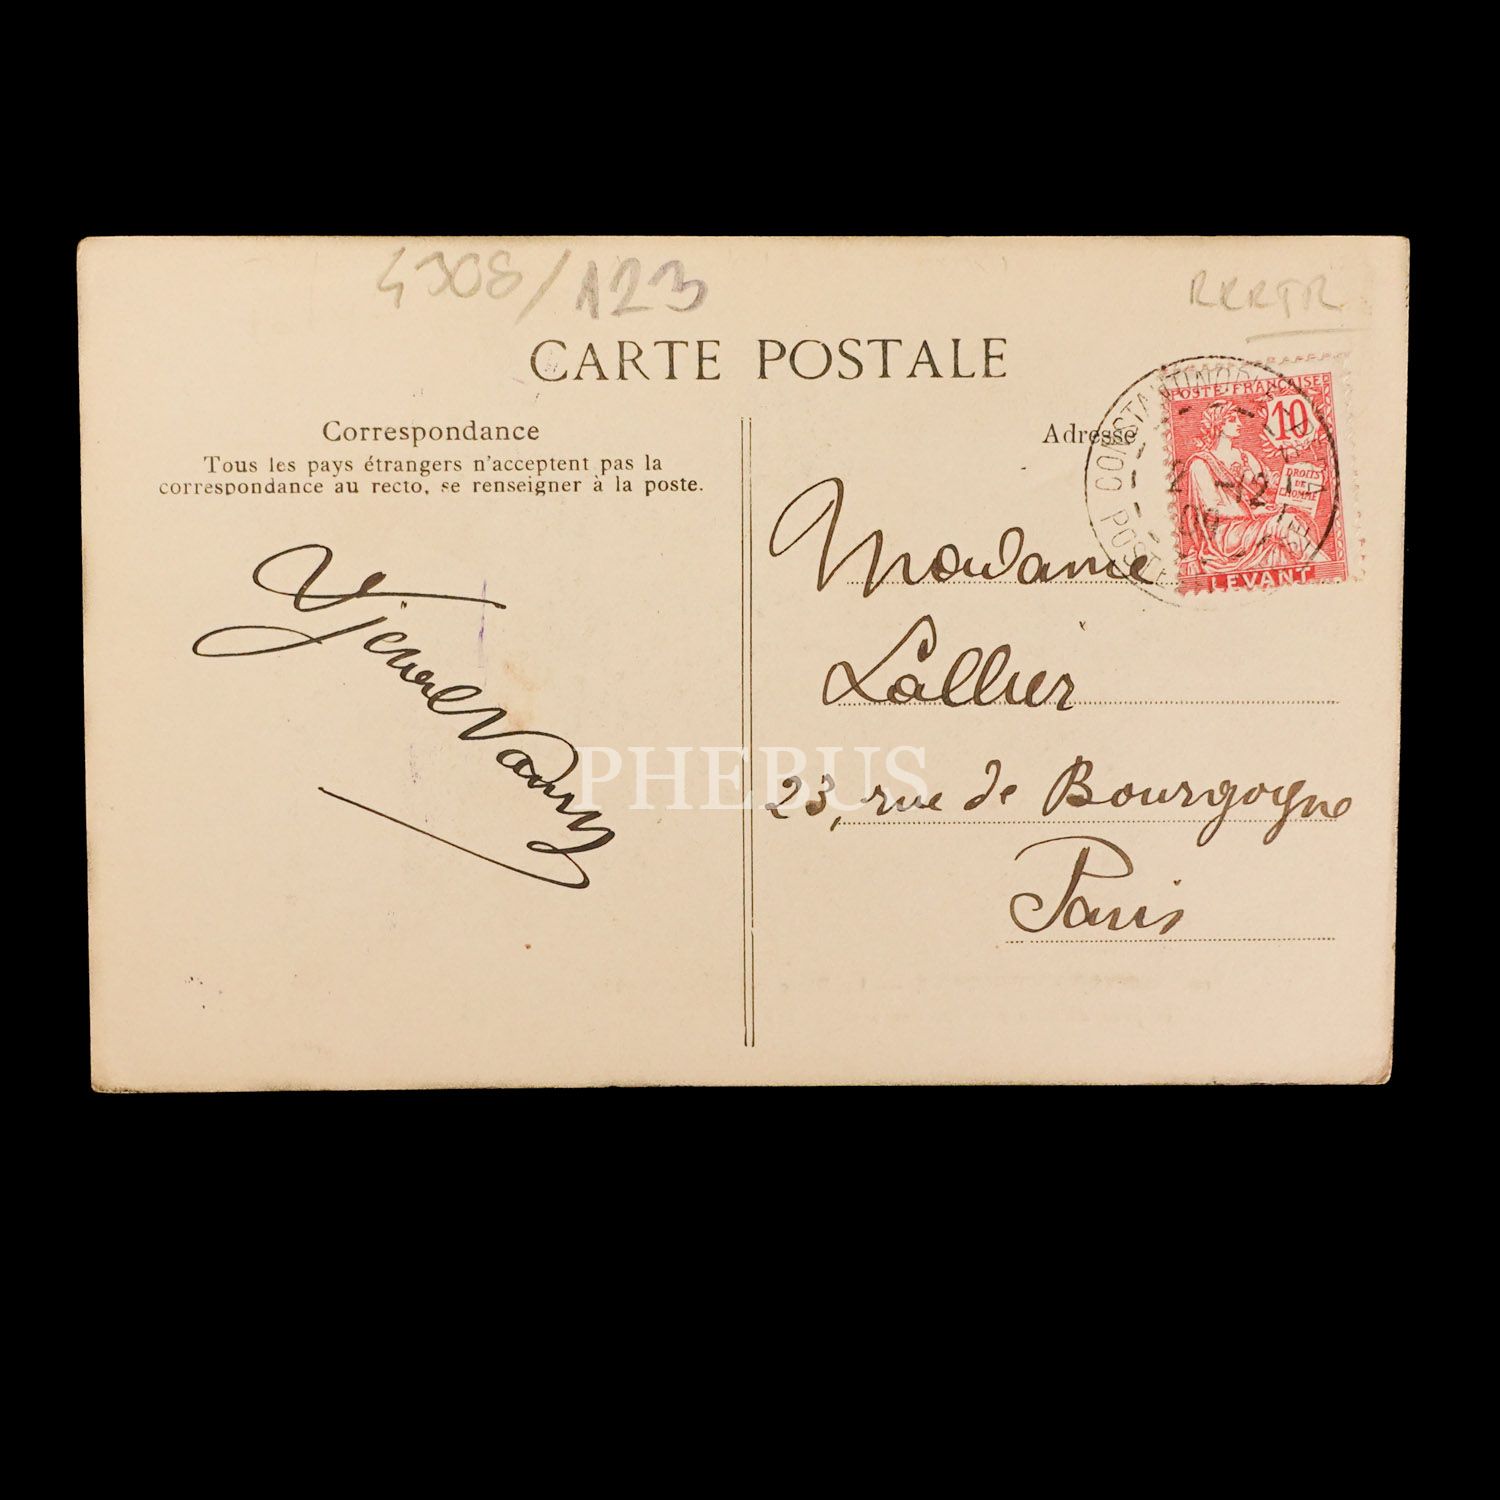 4308/123
CARTE POSTALE
Correspondance
Tous les pays étrangers n'acceptent pas la
correspondance au recto, se renseigner à la poste.
Adresse
POSTE FRANÇAISE
10
DROITS
DE
L'HOMME
LEVANT
CONSTANTINOPLE
Madame
Lallier
23, rue de Bourgogne
Paris
PHEBUS